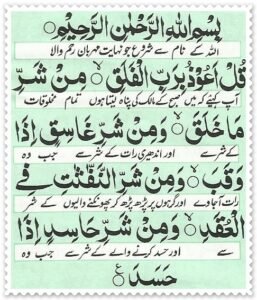 بِسْمِ اللّٰهِ الرَّحْمٰنِ الرَّحِيْمِ ○
اللہ کے نام سے شروع جو نہایت مہربان رحم والا
قُلْ اَعُوْذُ بِرَبِّ الْفَلَقِ ○ مِنْ شَرِّ
آپ کہئے کہ میں صبح کے مالک کی پناہ لیتا ہوں تمام مخلوقات
مَا خَلَقَ ○ وَمِنْ شَرِّ غَاسِقٍ اِذَا
کے شر سے اور اندھیری رات کے شر سے جب وہ
وَقَبَ ○ وَمِنْ شَرِّ النَّفّٰثٰتِ فِي
رات آجاوے اور گرہوں پر پڑھ پڑھ کر پھونکنے والیوں کے شر
الْعُقَدِ ○ وَمِنْ شَرِّ حَاسِدٍ اِذَا
سے اور حسد کرنے والے کے شر سے جب وہ
حَسَدَ ○ ع